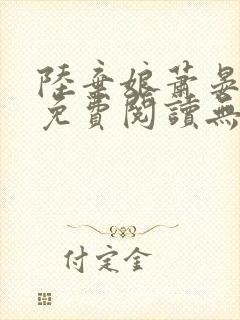 陸棄娘蕭晏
免費閱讀無
付定金